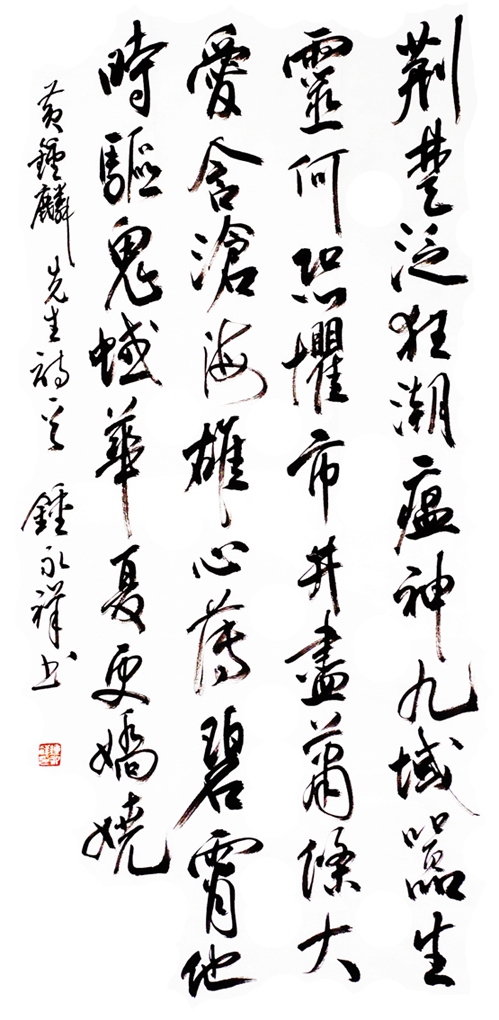 荆楚泛狂潮瘟神九域嚣生
靈何恐懼市井盡蕭條大
愛含滄海雄心薄碧霄他
時驅鬼蜮華夏更嬌嬈
黄鍾麟先生詩一首
鍾永祥书